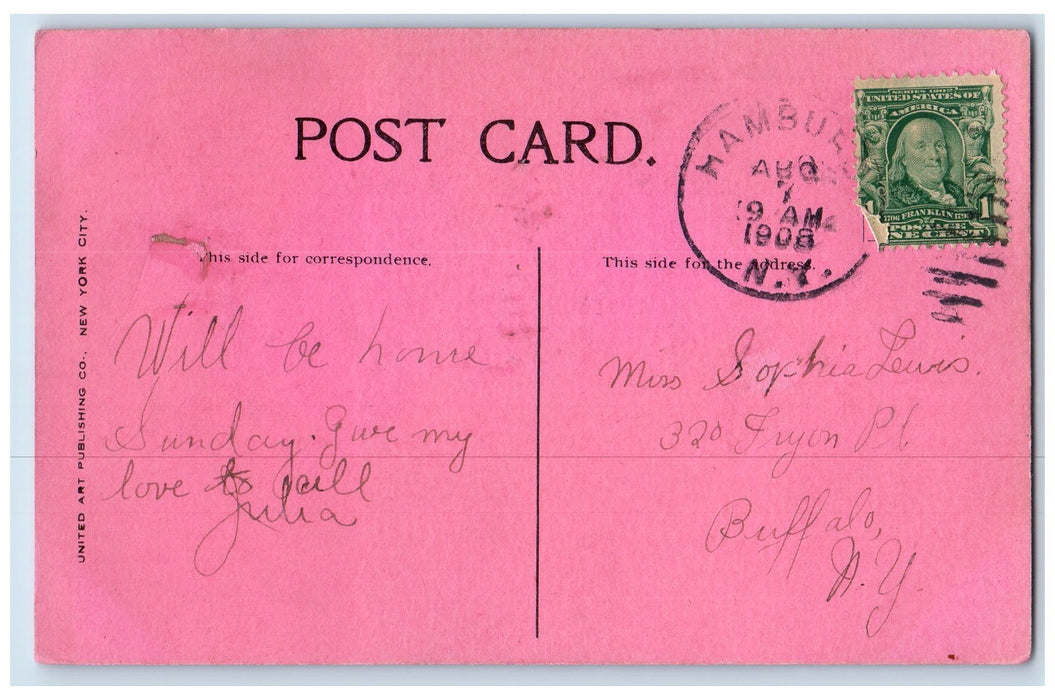 POST CARD.
HAMBUR
AUG
7
9 AM
1908
N.Y.
SERIES 1902
UNITED STATES OF
AMERICA
1706 FRANKLIN 1790
1
POSTAGE
NE CENT
UNITED ART PUBLISHING CO., NEW YORK CITY.
This side for correspondence.
This side for the address.
Will be home
Sunday. Give my
love to all
Julia
Miss Sophia Lewis.
320 Fryon Pl.
Buffalo,
N.Y.